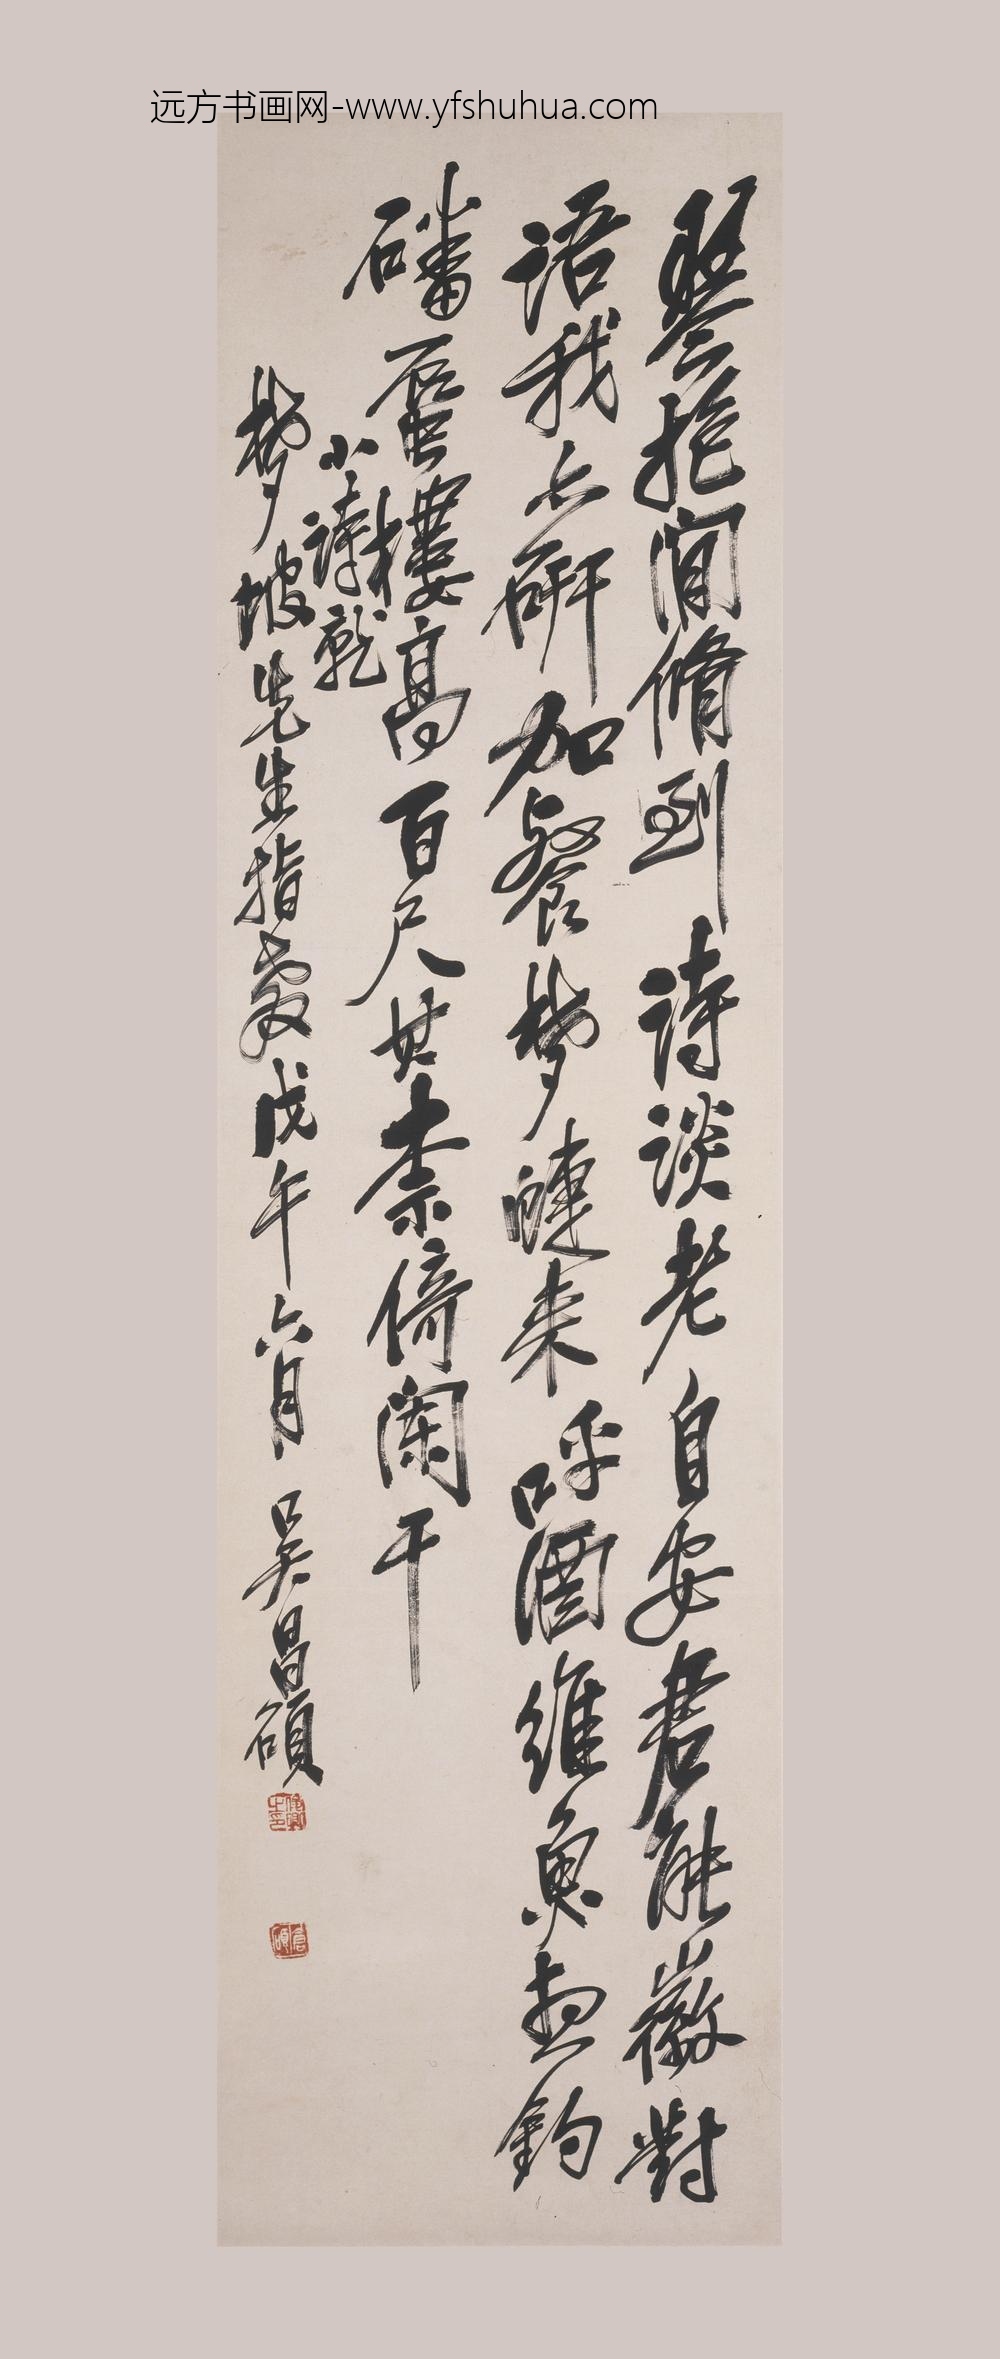 远方书画网-www.yfshuhua.com
琴抱闲修到诗谈老自安君能徽对
语我亦研加餐梦蝶来呼酒维鱼想钓
磻蜃楼高百尺甚柰倚阑干
小诗就
梦坡先生指教戊午六月吴昌硕